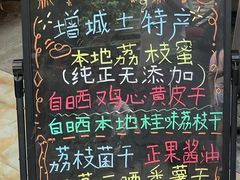 增城土特产
本地荔枝蜜
(纯正无添加)
自晒鸡心黄皮干
自晒本地桂味荔枝干
荔枝菌干 正果酱油